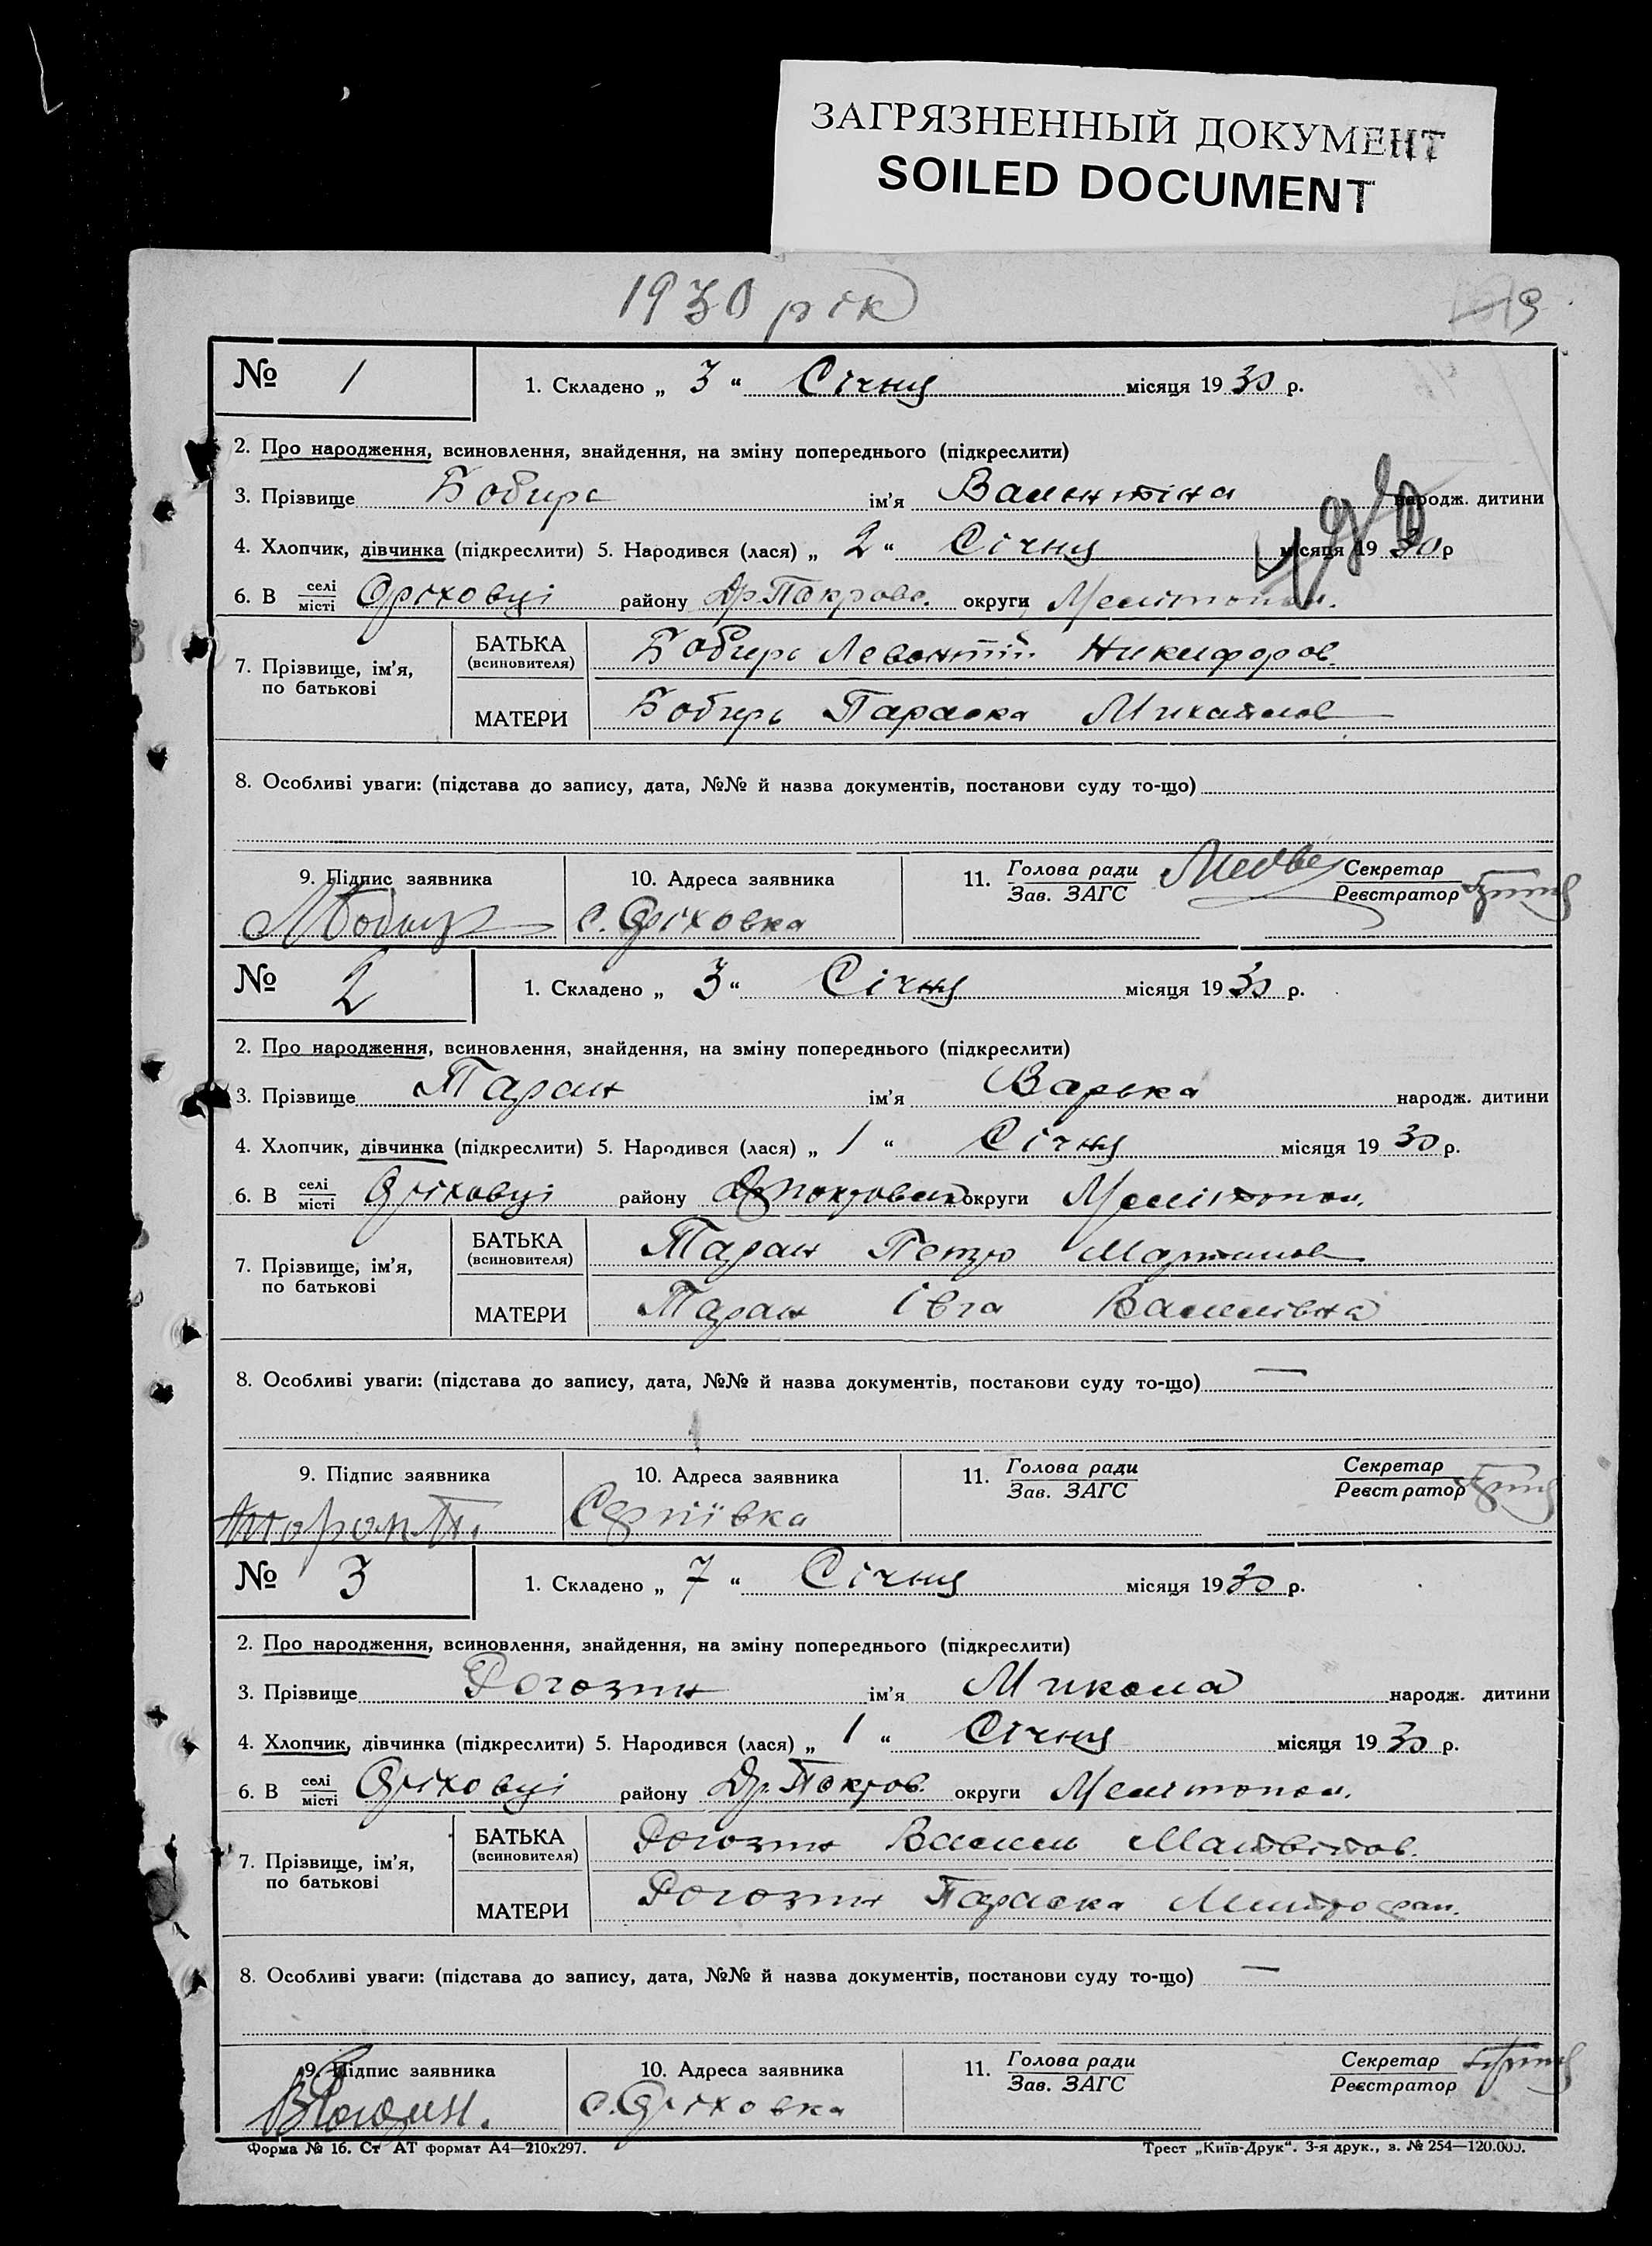 ЗАГРЯЗНЕННЫЙ ДОКУМЕНТ
SOILED DOCUMENT
1930 рік
№ 1 1. Складено „ 3 “ Січня місяця 1930 р.
2. Про народження, всиновлення, знайдення, на зміну попереднього (підкреслити)
3. Прізвище Бобирь ім'я Валентіна народж. дитини
4. Хлопчик, дівчинка (підкреслити) 5. Народився (лася) „ 2 “ Січня місяця 1930 р
6. В селі місті Оріховці району Др.Покровс. округи Мелітопол.
7. Прізвище, ім'я, по батькові БАТЬКА (всиновителя) Бобирь Левонтій Никифоров.
МАТЕРИ Бобирь Параска Михайлов
8. Особливі уваги: (підстава до запису, дата, №№ й назва документів, постанови суду то-що)
9. Підпис заявника 10. Адреса заявника 11. Голова ради Зав. ЗАГС Секретар Реєстратор
с. Оріховка
№ 2 1. Складено „ 3 “ Січня місяця 1930 р.
2. Про народження, всиновлення, знайдення, на зміну попереднього (підкреслити)
3. Прізвище Таран ім'я Варька народж. дитини
4. Хлопчик, дівчинка (підкреслити) 5. Народився (лася) „ 1 “ Січня місяця 1930 р.
6. В селі місті Оріховці району Др.Покровськ округи Мелітопол.
7. Прізвище, ім'я, по батькові БАТЬКА (всиновителя) Таран Петро Мартинов
МАТЕРИ Таран Івга Василівна
8. Особливі уваги: (підстава до запису, дата, №№ й назва документів, постанови суду то-що) —
9. Підпис заявника 10. Адреса заявника 11. Голова ради Зав. ЗАГС Секретар Реєстратор
Сергіївка
№ 3 1. Складено „ 7 “ Січня місяця 1930 р.
2. Про народження, всиновлення, знайдення, на зміну попереднього (підкреслити)
3. Прізвище Рогозин ім'я Микола народж. дитини
4. Хлопчик, дівчинка (підкреслити) 5. Народився (лася) „ 1 “ Січня місяця 1930 р.
6. В селі місті Оріховці району Др.Покров. округи Мелітопол.
7. Прізвище, ім'я, по батькові БАТЬКА (всиновителя) Рогозин Васил Матвійов.
МАТЕРИ Рогозин Параска Митрофан.
8. Особливі уваги: (підстава до запису, дата, №№ й назва документів, постанови суду то-що) —
9. Підпис заявника 10. Адреса заявника 11. Голова ради Зав. ЗАГС Секретар Реєстратор
ВРогозин. с. Оріховка
Форма № 16. Ст АТ формат А4—210х297. Трест „Київ-Друк“. 3-я друк., з. № 254—120.000.